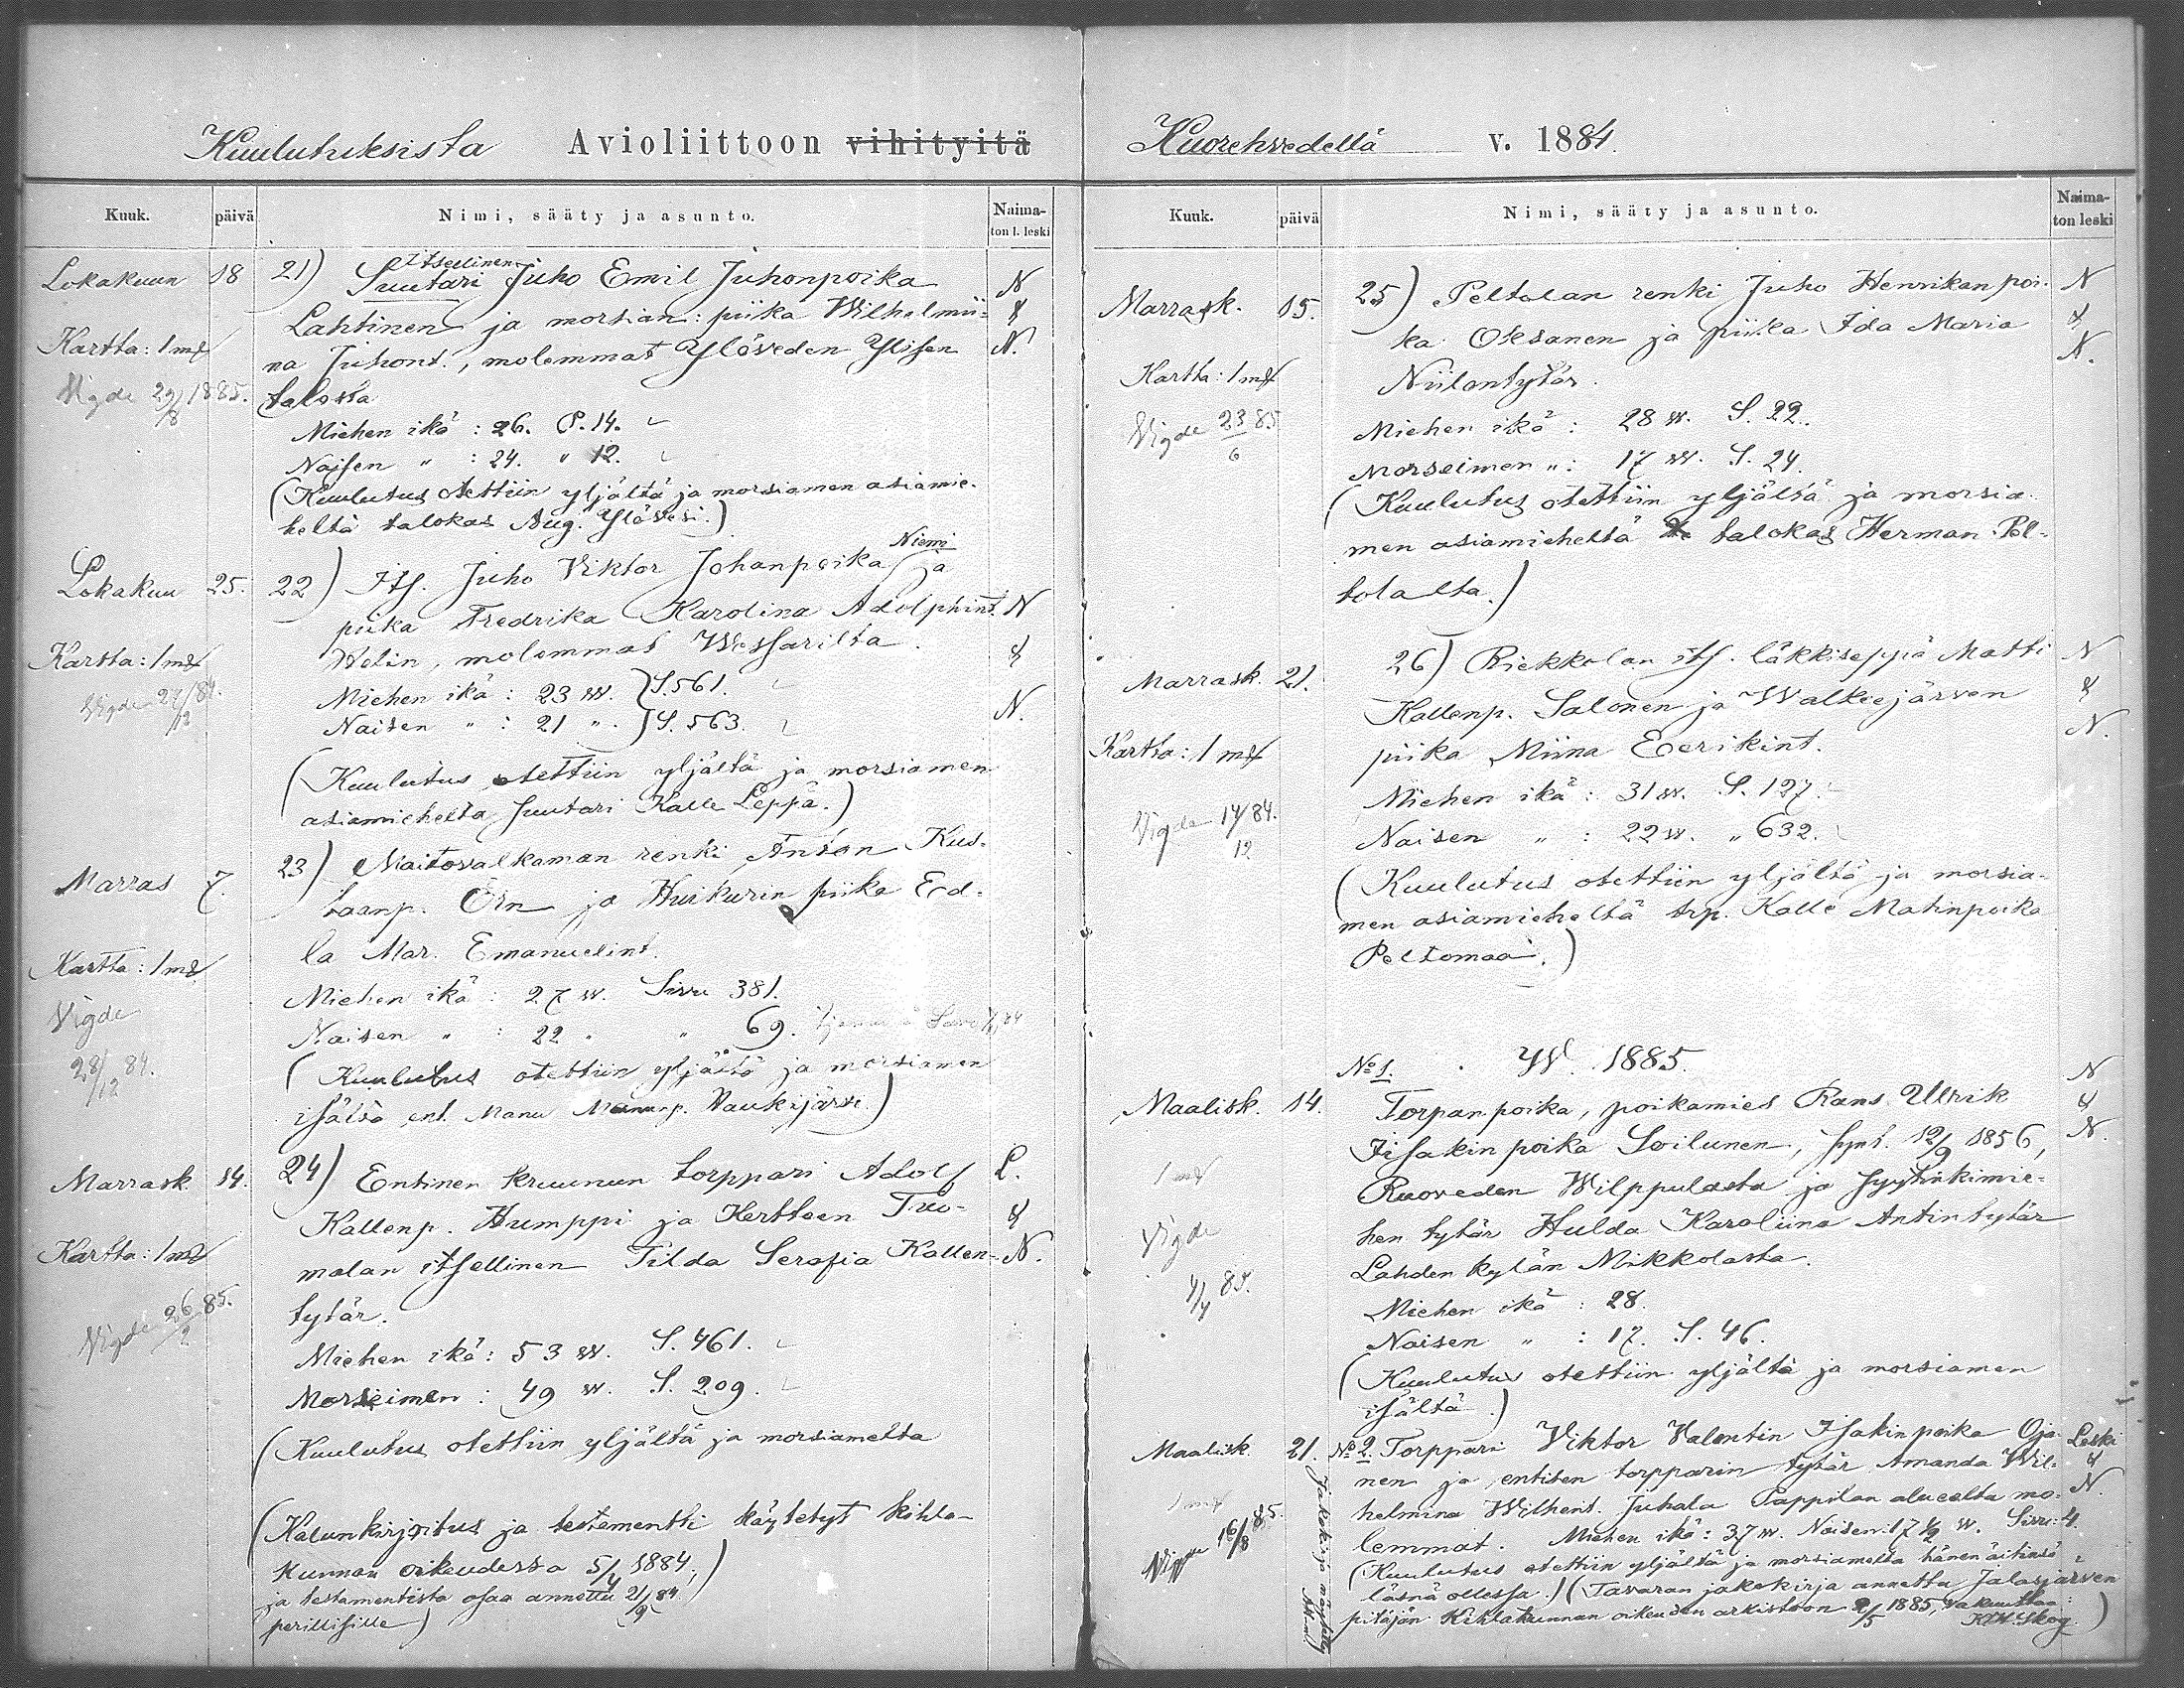 Kuulutuksista Avioliittoon vihityitä
Kuuk. päivä Nimi, sääty ja asunto. Naima-
ton l. leski
Lokakuun 18 21) Itsellinen
Suutari Juho Emil Juhonpoika N
Lahtinen ja morsian: piika Wilhelmii- &
Kartta: 1 mk
na Juhont., molemmat Ylöveden Ylisen N.
Vigde 29/8 1885.
talosta
Miehen ikä : 26. P. 14.
Naisen " : 24. " 12.
(Kuulutus otettiin yljältä ja morsiamen asiamie-
heltä talokas Aug. Ylövesi.)
Niemi
Lokakuu 25. 22) Its. Juho Viktor Johanpoika ja
piika Fredrika Karolina Adolphint. N
Kartta: 1 mk
Helin, molemmat Wessarilta. &
Vigde 27/12 84.
Miehen ikä : 23 w. } S. 561.
Naisen " : 21 " } S. 563. N.
(Kuulutus otettiin yljältä ja morsiamen
asiamieheltä suutari Kalle Leppä.)
Marras 7. 23) Maitovalkaman renki Anton Kus-
taanp. Örn ja Huikurin piika Ed-
la Mar. Emanuelint.
Kartta: 1 mk
Miehen ikä : 27 w. Sivu 381.
Vigde
Naisen " : 22 " " 69.
28/12 84.
(Kuulutus otettiin yljältä ja morsiamen
isältä ent. Manu Haukijärvi)
Marrask. 14. 24) Entinen kruunun torppari Adolf L.
Kallenp. Humppi ja Kertteen Tuo- &
Kartta: 1 mk
malan itsellinen Tilda Serafia Kallen- N.
tytär.
Vigde 26/2 85.
Miehen ikä: 53 w. S. 461.
Morseimen : 49 w. S. 209.
(Kuulutus otettiin yljältä ja morsiamelta
(Kalunkirjoitus ja testamentti käytetyt kihla-
kunnan oikeudessa 5/4 1884,)
ja testamentista osaa annettu 21/9 84
perillisille)
Kuorehvedellä v. 1884.
Kuuk. päivä Nimi, sääty ja asunto. Naima-
ton leski
Marrask. 15. 25) Peltolan renki Juho Henrikanpoi- N
ka Oksanen ja piika Ida Maria &
Kartta: 1 mk
Niilontytär. N.
Vigde 23/6 85
Miehen ikä : 28 w. S. 22.
Morseimen " : 17 w. S. 24.
(Kuulutus otettiin yljältä ja morsia-
men asiamieheltä talokas Herman Pel-
tolalta.)
Marrask. 21. 26) Riekkolan its. läkkiseppä Matti N
Kallenp. Salonen ja Walkeejärven &
Kartta: 1 mk
piika Miina Eerikint. N.
Miehen ikä : 31 w. S. 127.
Vigde 14/12 84.
Naisen " : 22 w. " 632.
(Kuulutus otettiin yljältä ja morsia-
men asiamieheltä trp. Kalle Matinpoika
Peltomaa.)
No 1. W. 1885. N
Maalisk. 14. Torpanpoika, poikamies Rans Ullrik &
Iisakinpoika Soilunen, synt. 12/9 1856, N.
1 mk
Ruoveden Wilppulasta ja syytinkimie-
Vigde
hen tytär Hulda Karoliina Antintytär
4/4 85.
Lahden kylän Mikkolasta.
Miehen ikä : 28.
Naisen " : 17. S. 46.
(Kuulutus otettiin yljältä ja morsiamen
isältä.)
Maalisk. 21. No 2. Torppari Viktor Valentin Isakinpoika Oja- Leski
nen ja entisen torpparin tytär Amanda Wil- &
1 mk
helmina Wilhent. Juhala Pappilan alueelta mo- N.
Vigde 16/8 85.
lemmat. Miehen ikä: 37 w. Naisen: 17 1/2 w. Sivu: 4.
(Kuulutus otettiin yljältä ja morsiamelta hänen äitinsä
läsnä ollessa.) (Tavaran jakokirja annettu Jalasjärven
pitäjän Kihlakunnan oikeuden arkistoon 2/5 1885, vakuuttaa:
K. W. Skog.)
Jakokirja näytetty